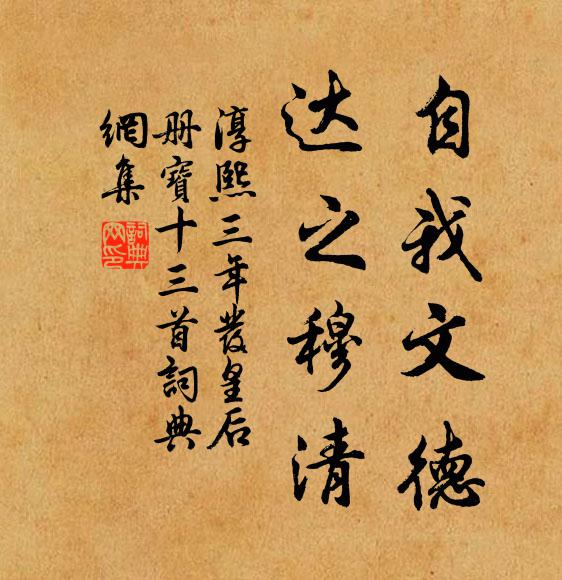 自我文德
达之穆清
淳熙三年發皇后
册寶十三首詞典
網集
詞典
网印